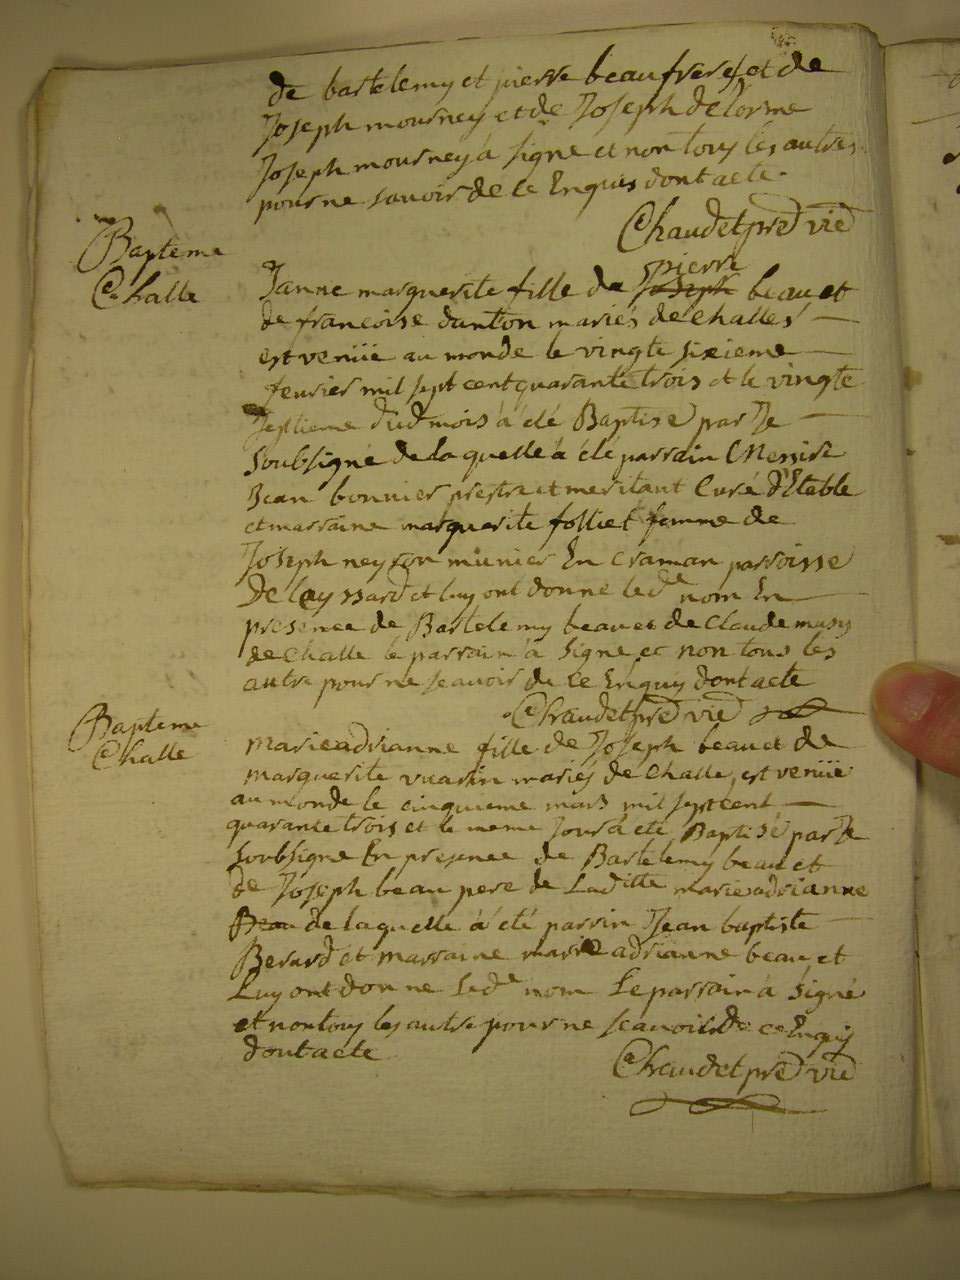 de bartelemy et pierre beau freres et de
Joseph mourney et de Joseph delorme
Joseph mourney à signe et non tous les autres
pour ne savoir de ce Enquis dont acte.
Chaudet pre vic
Bapteme
Challe
Janne marguerite fille de Joseph pierre beau et
de francoise danton mariés de Challes
est venüe au monde le vingte sixieme
fevrier mil sept cent quarante trois et le vingte
septieme dud mois à été Baptise par Je
soubsigné de la quelle à été parrain Messire
Jean bonnier prestre et meritant Curé d'Etable
et marraine marguerite folliet femme de
Joseph neyron munier En craman parroisse
De leyssard et luy ont donne led nom En
presence de Bartelemy beau et de Claude musy
de Challe le parrain à signe et non tous les
autre pour ne scavoir de ce Enquy dont acte
Chaudet pre vic
Bapteme
Challe
marie adrianne fille de Joseph beau et de
marguerite vuarin mariés de Challe, est venüe
au monde le cinquieme mars mil sept cent
quarante trois et le meme Jour à eté Baptisé par Je
soubsigne En presence de Bartelemy beau et
de Joseph beau pere de Laditte marie adrianne
Beau de laquelle à été parrin Jean baptiste
Berard et marraine marie adrianne beau et
Luy ont donne led nom Le parrain à signé
et non tous les autre pour ne scavoir de ce Enquis
dont acte
Chaudet pre vic